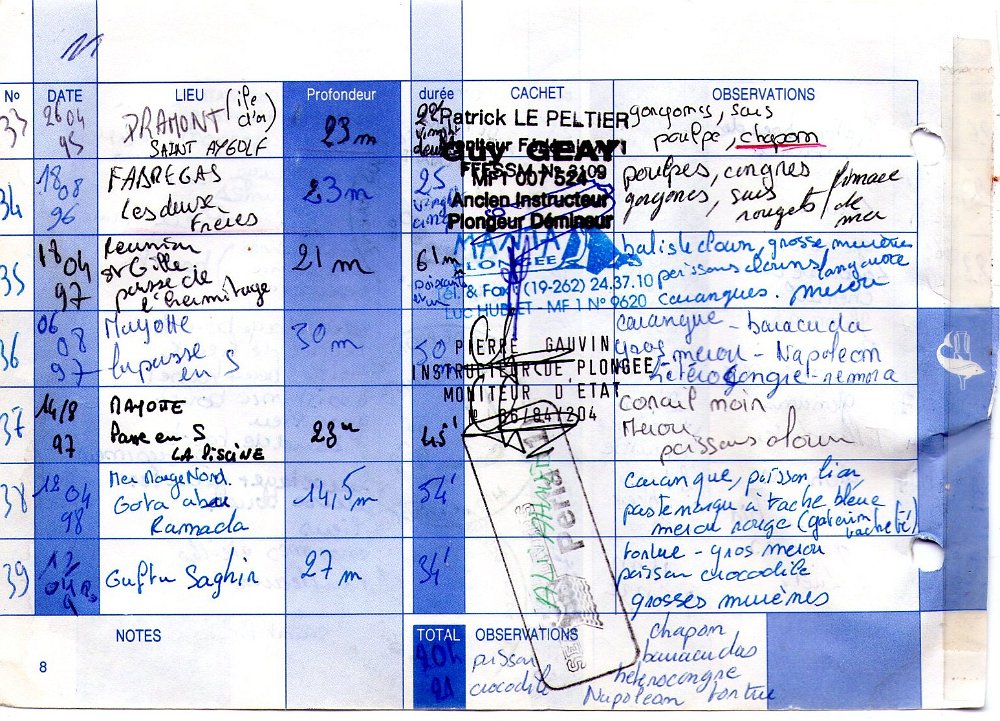 11
No DATE LIEU Profondeur durée CACHET OBSERVATIONS
33 26 04 95 DRAMONT (ile d'or) SAINT AYGOLF 23 m 22' vingt deux
gorgones, sars
poulpe, chapon
Patrick LE PELTIER
Moniteur Fédéral
Guy GEAY
FFESSM
MF1 007 524 9
Ancien Instructeur
Plongeur Démineur
34 18 08 96 FABREGAS
Les deux
Frères
23 m 25 vingt cinq
poulpes, congres
gorgones, sars
rougets / limace de mer
35 18 04 97 Reunion
St Gille
passe de
l'hermitage
21 m 61 m soixante et un
MANTA
PLONGEE
Tél. & Fax (19-262) 24.37.10
LUC HUBLET - MF 1 N° 9620
baliste clown, grosse murènes
poissons clowns / langouste
carangues. merou
36 06 08 97 Mayotte
la passe
en S
30 m 50
PIERRE GAUVIN
INSTRUCTEUR DE PLONGEE
MONITEUR D'ETAT
N° 06/84/204
carangue - baracuda
gros merou - Napoleon
hétérocongre - remora
37 14/8 97 MAYOTTE
Passe en S
LA PISCINE
23 m 45'
corail noir
Merou
poissons clown
38 12 04 98 Mer Rouge Nord.
Gota abu
Ramada
14,5 m 54'
carangue, poisson lion
pastenague à tache bleue
merou rouge
39 Guftu Saghir 27 m 34'
tortue - gros merou
poisson crocodile
grosses murènes
NOTES TOTAL OBSERVATIONS
8
poisson
crocodile
chapon
baracudas
heterocongre
Napoleon tortue